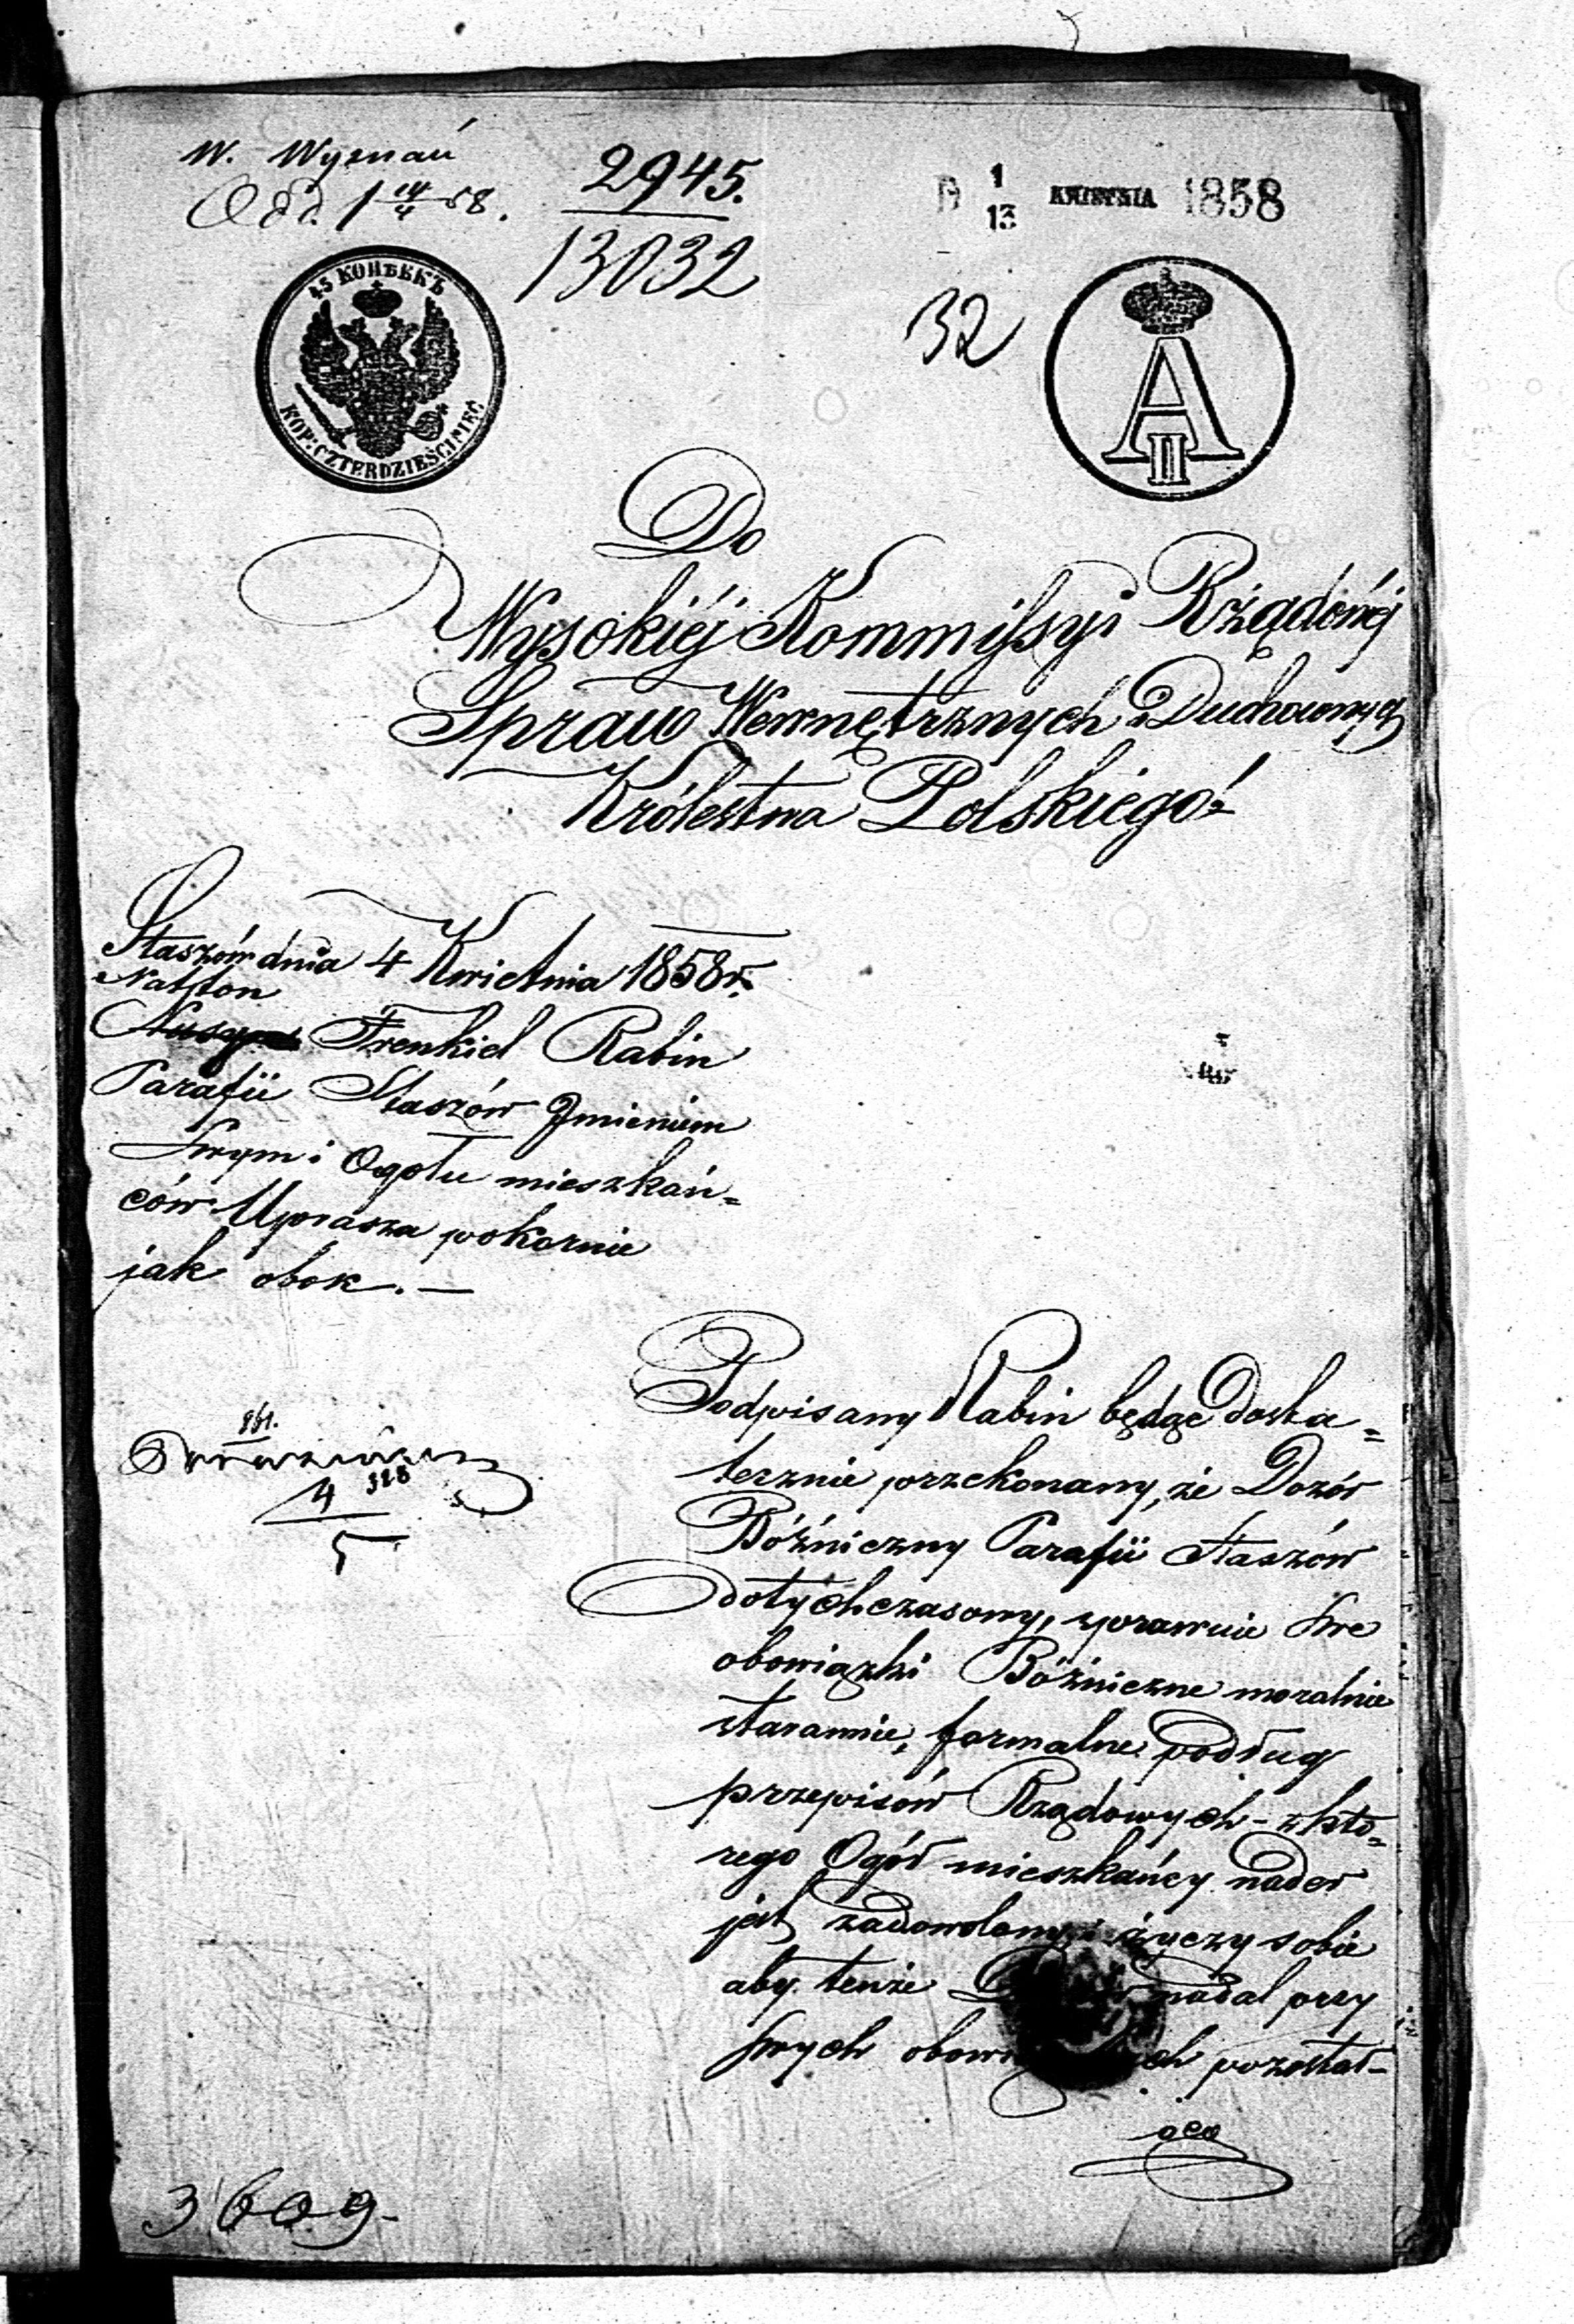 W. Wyznań
Odd. 1 14/4 58.
2945.
13032
1/13 KWIETNIA 1858
32
45 КОПѢЕКЪ
KOP: CZTERDZIEŚCI PIĘĆ
A II
Do
Wysokiéj Kommissyi Rządowéj
Spraw Wewnętrznych i Duchownych
Królestwa Polskiego
Staszów dnia 4 Kwietnia 1858 r.
Frenkiel Rabin
Parafii Staszów Imieniem
Swym i Ogołu mieszkań=
ców Uprasza pokornie
jak obok. —
Podpisany Rabin będąc dosta=
tecznie przekonany, że Dozór
Bóżniczny Parafii Staszów
dotychczasowy, sprawuie swe
obowiązki Bóźniczne moralnie
starannie, formalne podług
przepisów Rządowych - z któ=
rego Ogół mieszkańcy nader
jest zadowolany i życzy sobie
aby tenże nadal przy
swych pozostał -
4
5
3609